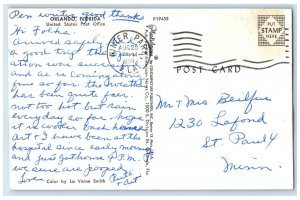 Pen writes good thanks
ORLANDO, FLORIDA
United States Post Office
Hi Folks
Arrived safely
a good trip the
ation was
and as is coming along
fine so far the weather
has been quite fair
not too hot but rain
everyday so far hope
it is cooler back home
Art & I have been at the
hospital since early morning
and just got home 4 P.M.
we sure are pooped
love
Art
Color by La Verne Smith
P19439
WINTER PARK
AUG 25
FLA
PUT
STAMP
HERE
POST CARD
Mr & Mrs
1230 Lafond
St. Paul 4
Minn.